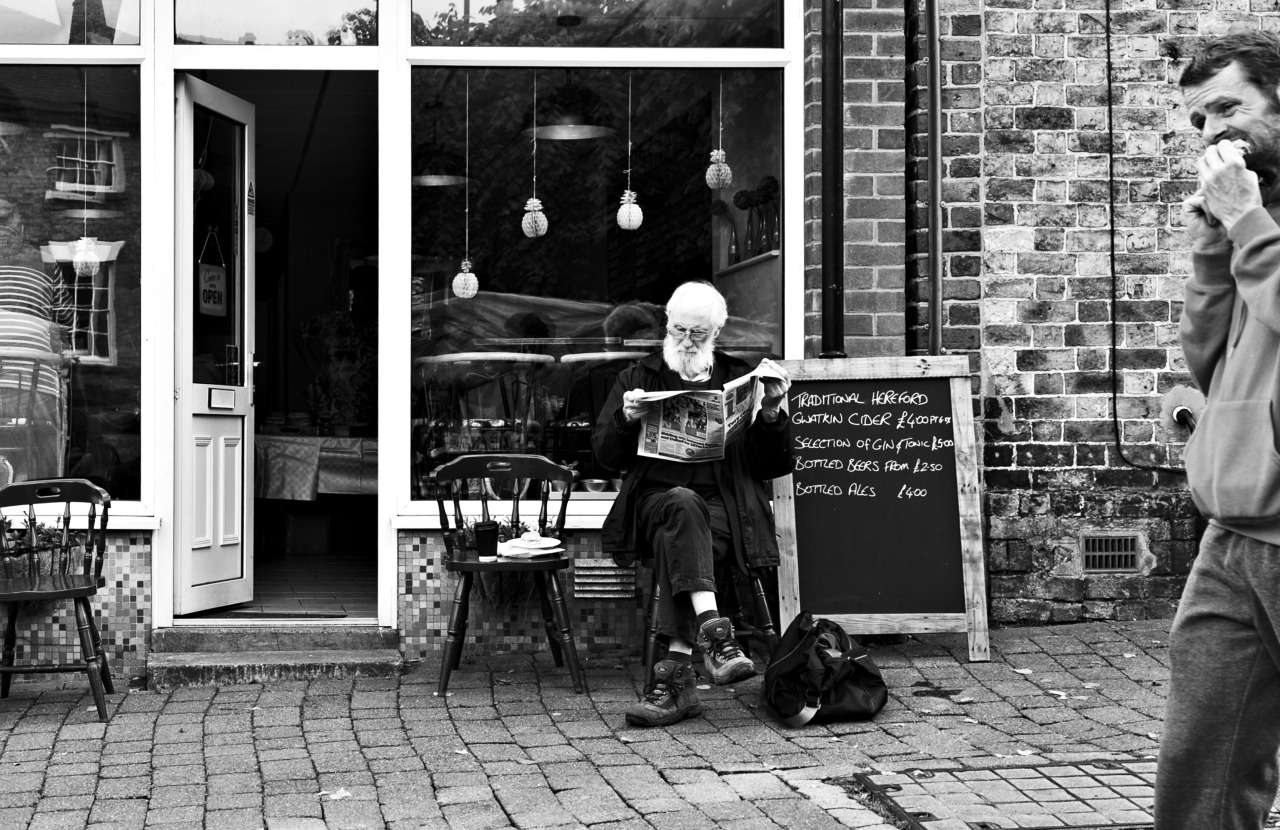 OPEN
TRADITIONAL HEREFORD
GWATKIN CIDER £4.00
SELECTION OF GIN & TONIC £5.00
BOTTLED BEERS FROM £2.50
BOTTLED ALES £4.00